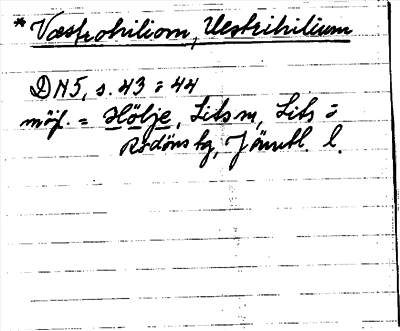 * Væstrohiliom, Uestrihilium
DN5, s. 43 : 44
möjl. = Hölje, Lits sn, Lits o
Rödöns tg, Jämtl. l.